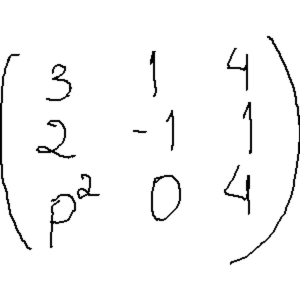 3 1 4
2 -1 1
p² 0 4